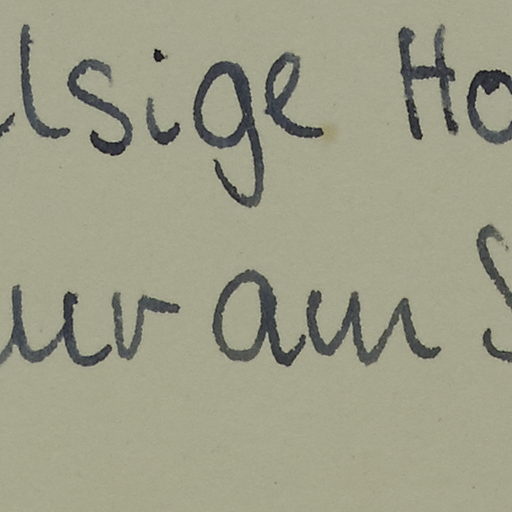 lsige Ho
ur am S